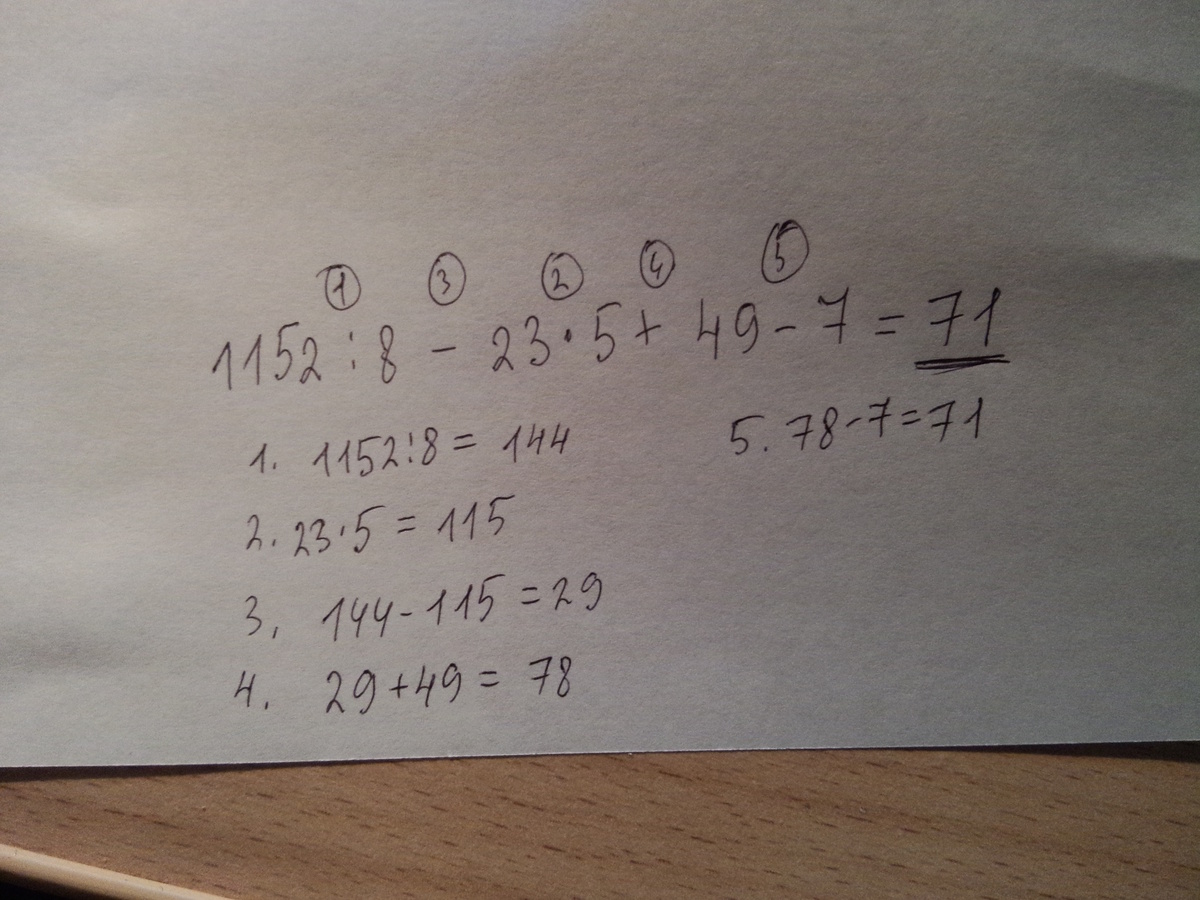 ① ③ ② ④ ⑤
1152 : 8 - 23 · 5 + 49 - 7 = 71
1. 1152:8 = 144
5. 78-7=71
2. 23·5 = 115
3, 144-115 = 29
4. 29+49 = 78